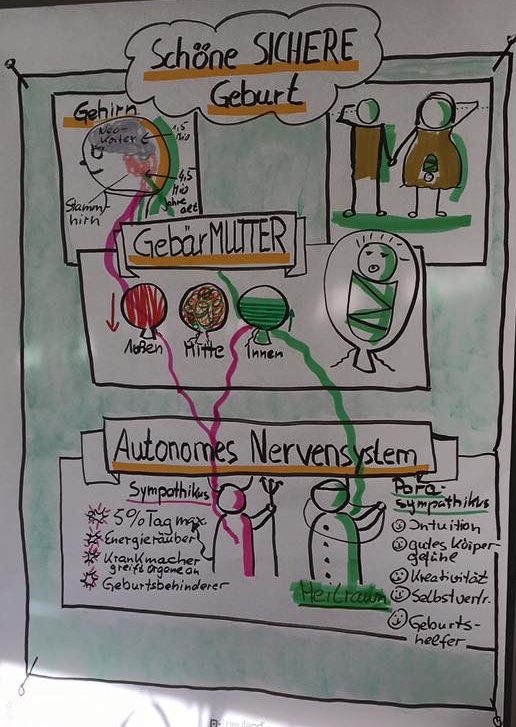 Schöne SICHERE
Geburt
Gehirn
Neo-
Kortex
1,5
Mio
4,5
Mio
Jahre
alt
Stamm-
hirn
GebärMUTTER
Außen
Mitte
Innen
Autonomes Nervensystem
Sympathikus
5% Tag max.
Energieräuber
Krankmacher
greift Organe an
Geburtsbehinderer
Heilraum
Para-
sympathikus
Intuition
gutes Körper-
gefühl
Kreativität
Selbstvertr.
Geburts-
helfer